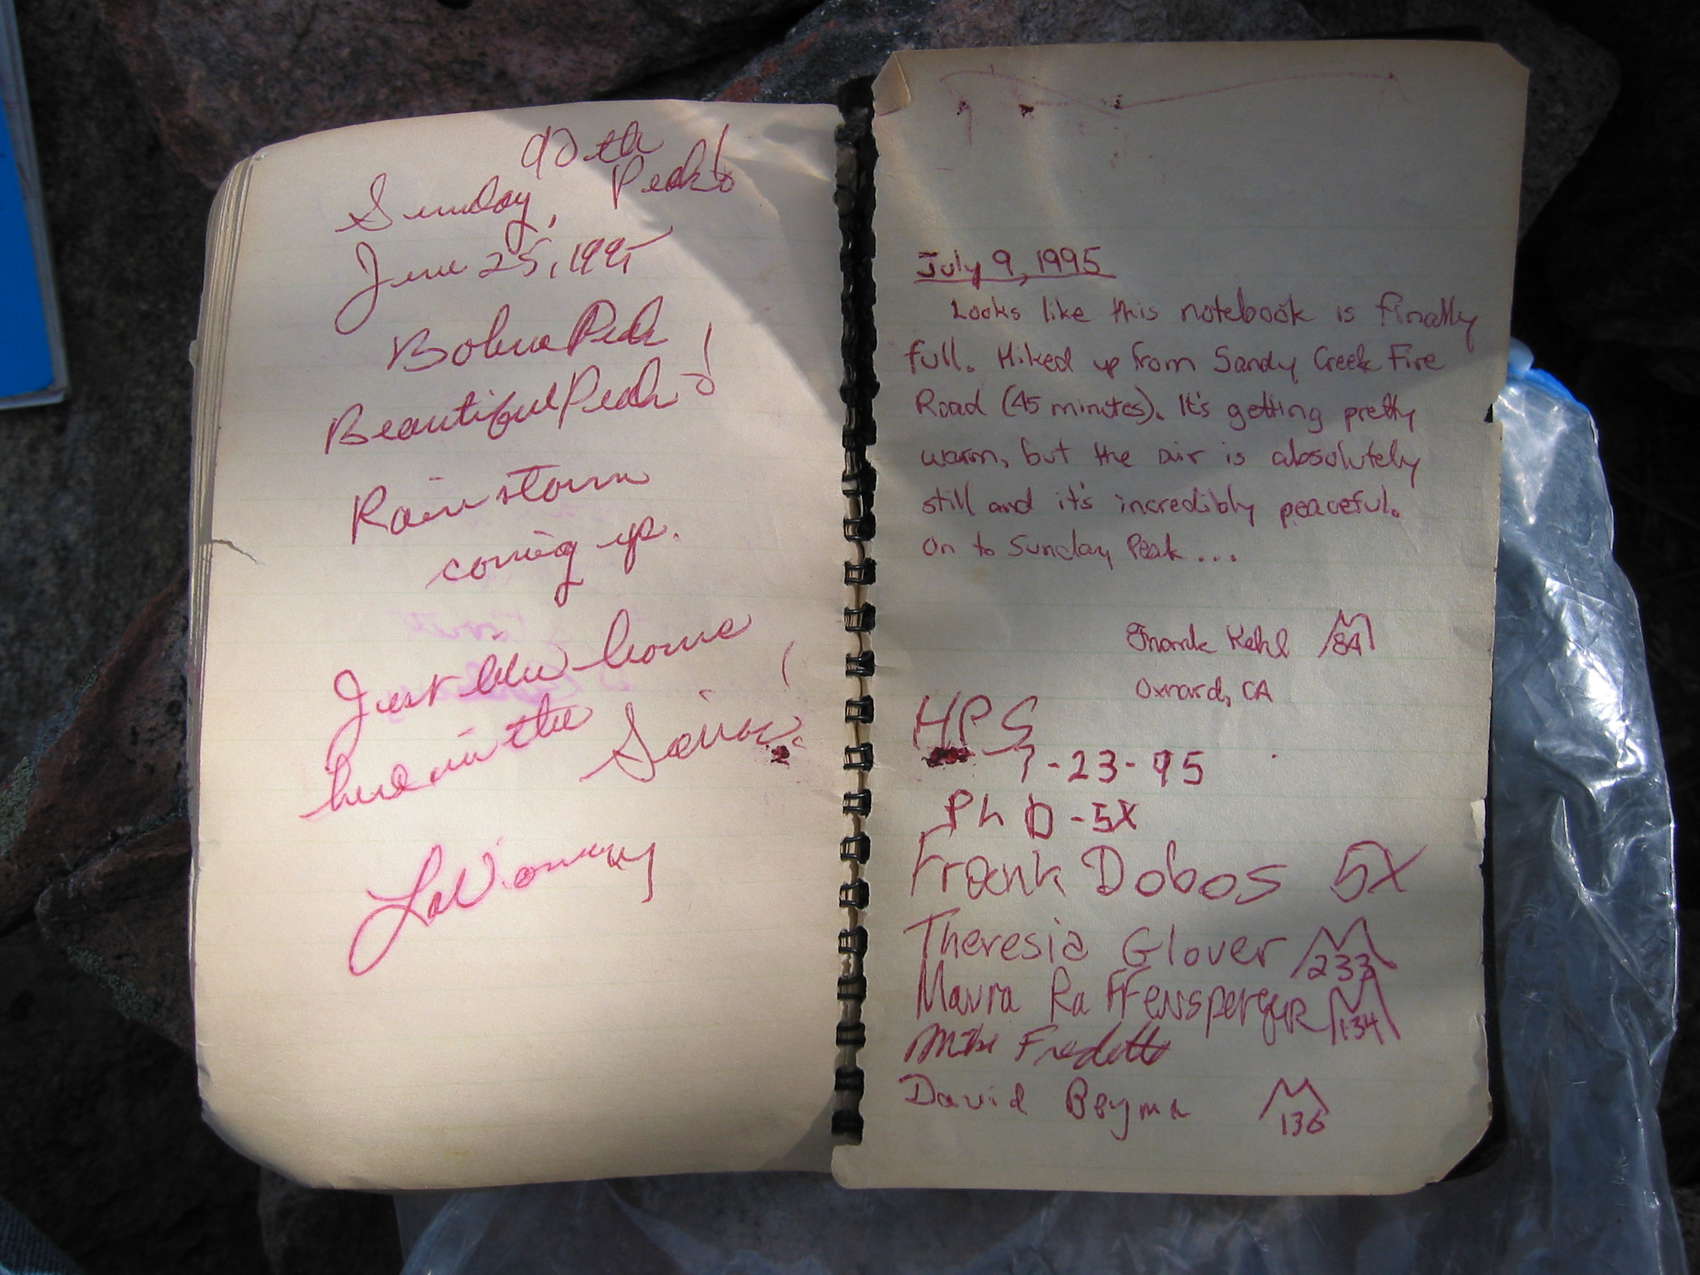 92th
Sunday, Peak!
June 25, 1995
Bohna Peak
Beautiful Peak!
Rain storm
coming up.
Just like home
here in the Sierra!
July 9, 1995
Looks like this notebook is finally
full. Hiked up from Sandy Creek Fire
Road (45 minutes). It's getting pretty
warm, but the air is absolutely
still and it's incredibly peaceful.
On to Sunday Peak...
Frank Kehl 84
Oxnard, CA
HPS
7-23-95
PhD-5X
Frank Dobos 5X
Theresia Glover 233
Maura Raffensperger 134
Mike Fredette
David Beymer 136